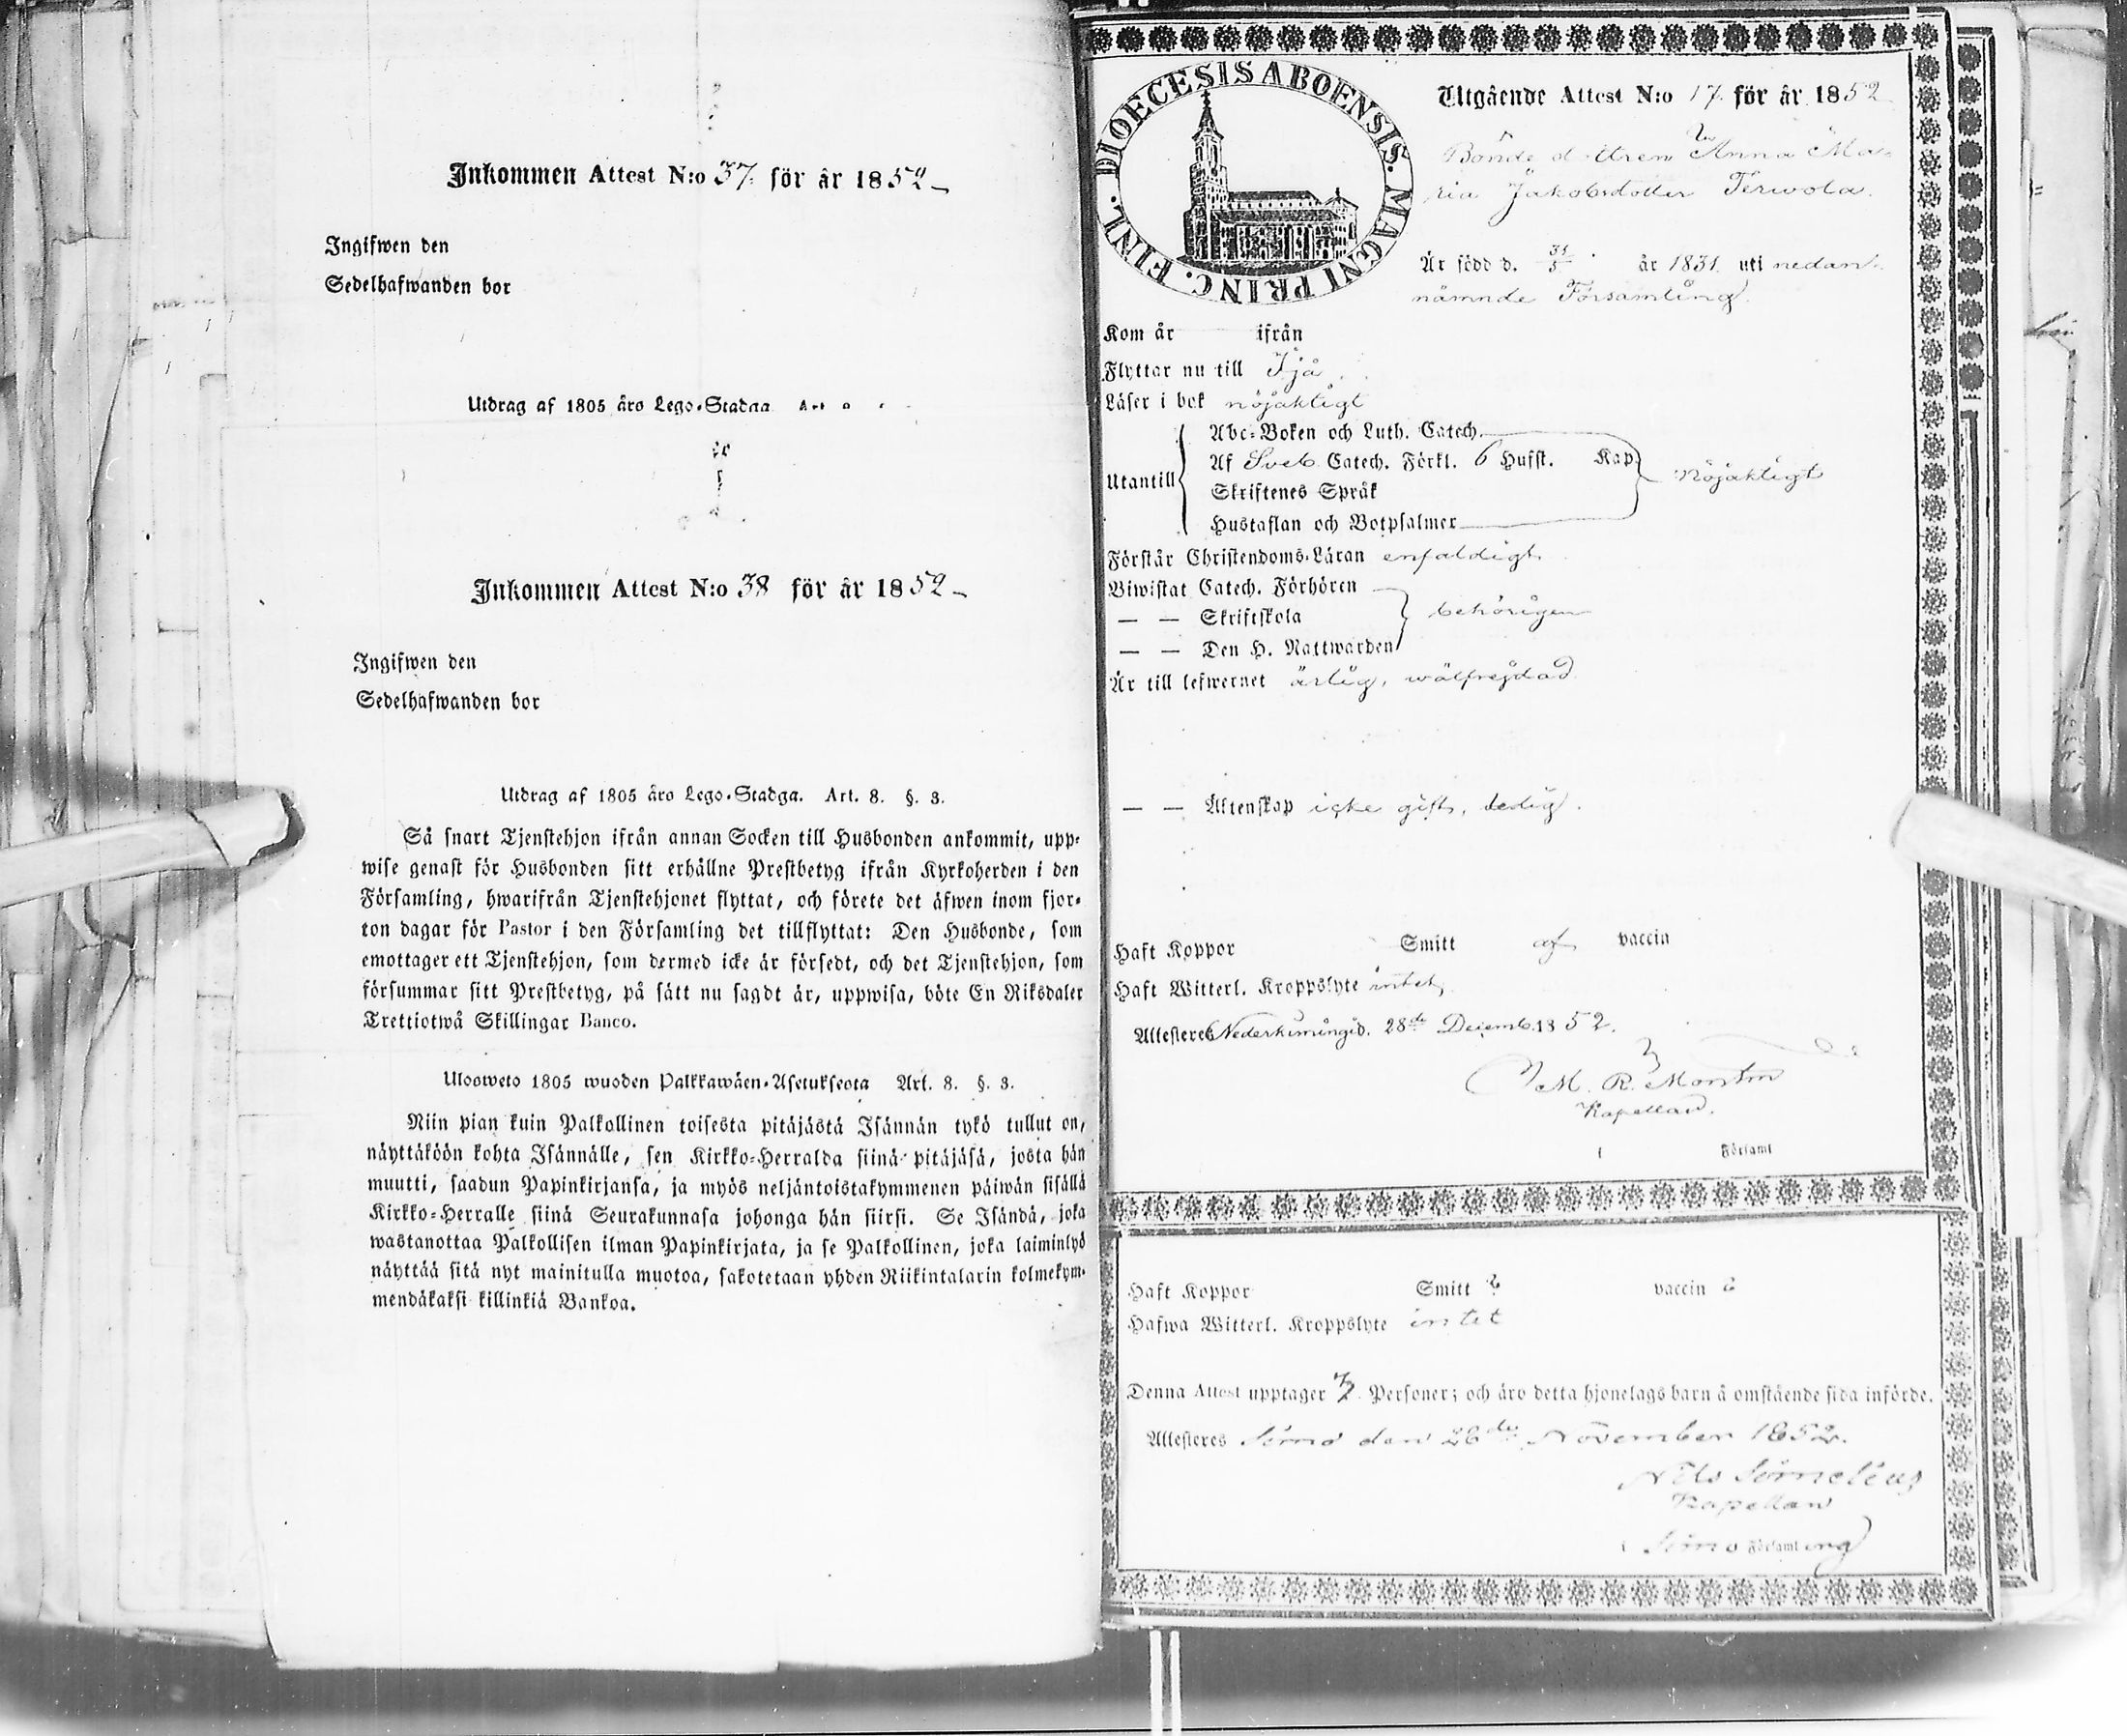 Inkommen Attest N:o 37. för år 1852
Ingifwen den
Sedelhafwanden bor
Utdrag af 1805 års Lego-Stadga
Inkommen Attest N:o 38 för år 1852
Ingifwen den
Sedelhafwanden bor
Utdrag af 1805 års Lego-Stadga. Art. 8. §. 3.
Så snart Tjenstehjon ifrån annan Socken till Husbonden ankommit, upp-
wise genast för Husbonden sitt erhållne Prestbetyg ifrån Kyrkoherden i den
Församling, hwarifrån Tjenstehjonet flyttat, och förete det äfwen inom fjor-
ton dagar för Pastor i den Församling det tillflyttat: Den Husbonde, som
emottager ett Tjenstehjon, som dermed icke är försedt, och det Tjenstehjon, som
försummar sitt Prestbetyg, på sätt nu sagdt är, uppwisa, böte En Riksdaler
Trettiotwå Skillingar Banco.
Ulosweto 1805 wuoden Palkkawäen-Asetuksesta Art. 8. §. 3.
Niin pian kuin Palkollinen toisesta pitäjästä Isännän tykö tullut on,
näyttäköön kohta Isännälle, sen Kirkko-Herralda siinä pitäjäsä, josta hän
muutti, saadun Papinkirjansa, ja myös neljäntoistakymmenen päiwän sisällä
Kirkko-Herralle siinä Seurakunnasa johonga hän siirsi. Se Isändä, joka
wastanottaa Palkollisen ilman Papinkirjata, ja se Palkollinen, joka laiminlyö
näyttää sitä nyt mainitulla muotoa, sakotetaan yhden Riikintalarin kolmekym-
mendäkaksi killinkiä Bankoa.
DIOECESIS ABOENSIS. MAGNI PRINC. FINL.
Utgående Attest N:o 17. för år 1852
Bonde dottren Anna Ma-
ria Jakobsdotter Terwola.
Är född d. 31/5 år 1831. uti nedan-
nämnde Församling.
Kom år ifrån
Flyttar nu till Ijå
Läser i bok nöjaktigt
Abc-Boken och Luth. Catech.
Utantill Af Sveb. Catech. Förkl. 6 Hufst. Kap. Nöjaktigt
Skriftenes Språk
Hustaflan och Botpsalmer
Förstår Christendoms-Läran enfaldigt.
Biwistat Catech. Förhören
— — Skriftskola behörigen
— — Den H. Nattwarden
Är till lefwernet ärlig, wälfrejdad
— — Äktenskap icke gift, ledig.
Haft Koppor Smitt af vaccin
Haft Witterl. Kroppslyte intet,
Attesteres Nederkimingi d. 28de Decemb. 1852.
Kapellan.
i Församl
Haft Koppor Smitt vaccin
Hafwa Witterl. Kroppslyte intet
Denna Attest upptager 7 Personer; och äro detta hjonelags barn å omstående sida införde.
Attesteres Simo den 26de November 1852.
Nils Simelius
Kapellan
i Simo Församling